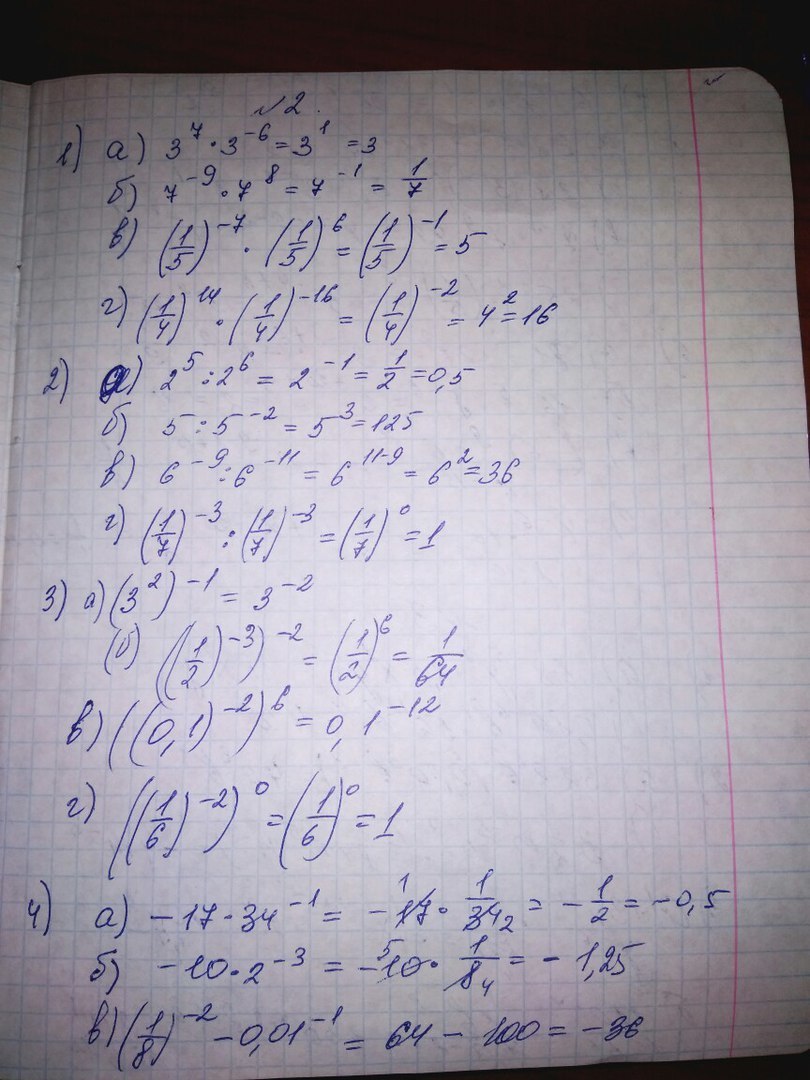 №2.
1) а) 3^7 · 3^-6 = 3^1 = 3
б) 7^-9 · 7^8 = 7^-1 = 1/7
в) (1/5)^-7 · (1/5)^6 = (1/5)^-1 = 5
г) (1/4)^14 · (1/4)^-16 = (1/4)^-2 = 4^2 = 16
2) а) 2^5 : 2^6 = 2^-1 = 1/2 = 0,5
б) 5 : 5^-2 = 5^3 = 125
в) 6^-9 : 6^-11 = 6^11-9 = 6^2 = 36
г) (1/7)^-3 : (1/7)^-3 = (1/7)^0 = 1
3) а) (3^2)^-1 = 3^-2
б) ((1/2)^-3)^-2 = (1/2)^6 = 1/64
в) ((0,1)^-2)^6 = 0,1^-12
г) ((1/6)^-2)^0 = (1/6)^0 = 1
4) а) -17 · 34^-1 = -17 1 · 1/34 2 = -1/2 = -0,5
б) -10 · 2^-3 = -5 10 · 1/8 4 = -1,25
в) (1/8)^-2 - 0,01^-1 = 64 - 100 = -36